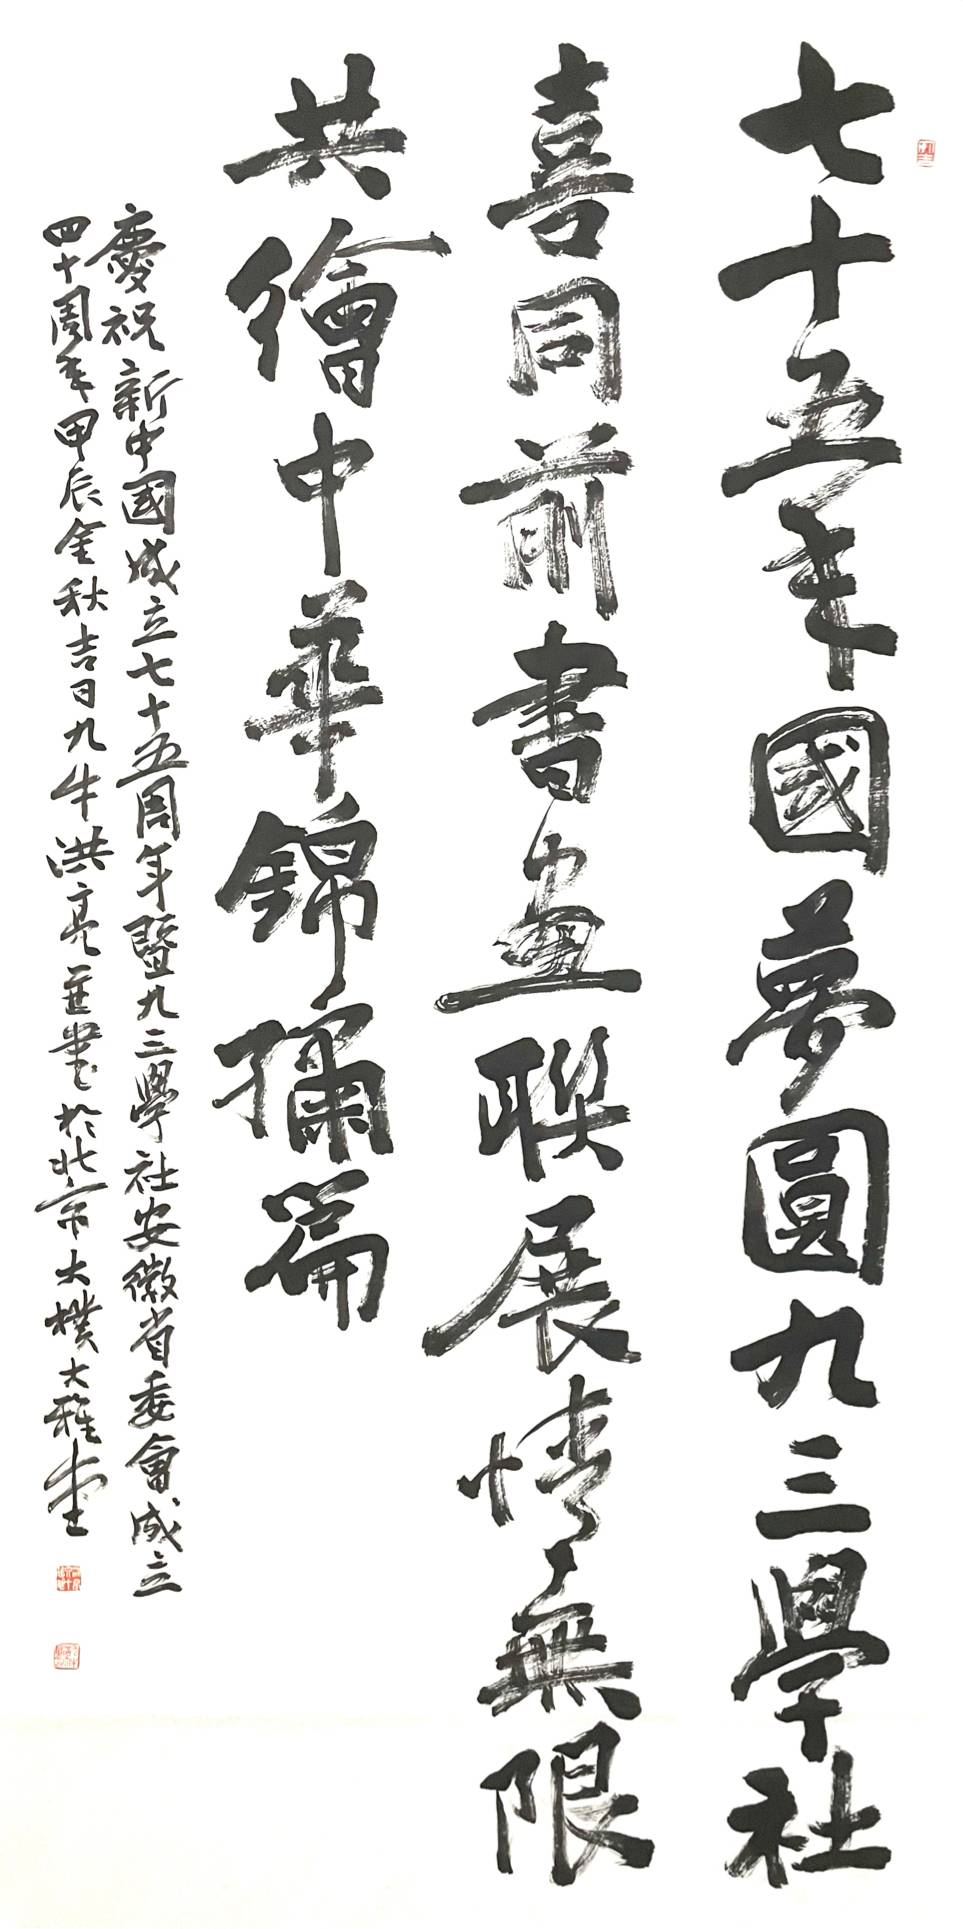 七十五年國夢圓九三學社
喜同前書畫聯展情無限
共繪中華錦繡篇
慶祝新中國成立七十五周年暨九三學社安徽省委會成立
四十周年甲辰金秋吉日九牛洪亮並書於北京大樸大雅堂